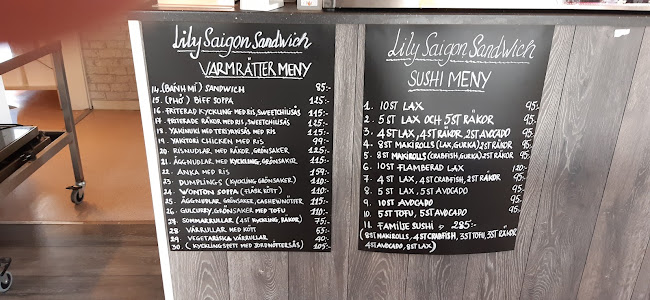 Lily Saigon Sandwich
VARMRÄTTER MENY
14. (BÁNH MÌ) SANDWICH 85:-
15. (PHỞ) BIFF SOPPA 125:-
16. FRITERAD KYCKLING MED RIS, SWEETCHILISÅS 115:-
17. FRITERADE RÄKOR MED RIS, SWEETCHILISÅS 125:-
18. YAKINIKU MED TERIYAKISÅS MED RIS 115:-
19. YAKITORI CHICKEN MED RIS 99:-
20. RISNUDLAR MED RÄKOR, GRÖNSAKER 125:-
21. ÄGGNUDLAR MED KYCKLING, GRÖNSAKER 115:-
22. ANKA MED RIS 159:-
23. DUMPLINGS (KYCKLING, GRÖNSAKER) 110:-
24. WONTON SOPPA (FLÄSK KÖTT) 110:-
25. ÄGGNUDLAR GRÖNSAKER, CASHEWNÖTTER 115:-
26. GULCURRY, GRÖNSAKER MED TOFU 110:-
27. SOMMARRULLAR (4ST KYCKLING, RÄKOR) 75:-
28. VÅRRULLAR MED KÖTT 53:-
29. VEGETARISKA VÅRRULLAR 40:-
30. (KYCKLINGSPETT MED JORDNÖTTERSÅS) 105:-
Lily Saigon Sandwich
SUSHI MENY
1. 10 ST LAX 95:-
2. 5 ST LAX OCH 5 ST RÄKOR 95:-
3. 4 ST LAX, 4 ST RÄKOR, 2 ST AVOCADO 95:-
4. 8ST MAKIROLLS (LAX, GURKA) 2ST RÄKOR 95:-
5. 8ST MAKIROLLS (CRABFISH, GURKA), 2ST RÄKOR 95:-
6. 10 ST FLAMBERAD LAX 120:-
7. 4 ST LAX, 4 ST CRABFISH, 2 ST RÄKOR 95:-
8. 5 ST LAX, 5 ST AVOCADO 95:-
9. 10 ST AVOCADO 95:-
10. 5 ST TOFU, 5 ST AVOCADO 95:-
11. FAMILJE SUSHI 285:-
(8ST MAKIROLLS, 4ST CRABFISH, 3ST TOFU, 3ST RÄKOR
4ST AVOCADO, 8ST LAX)